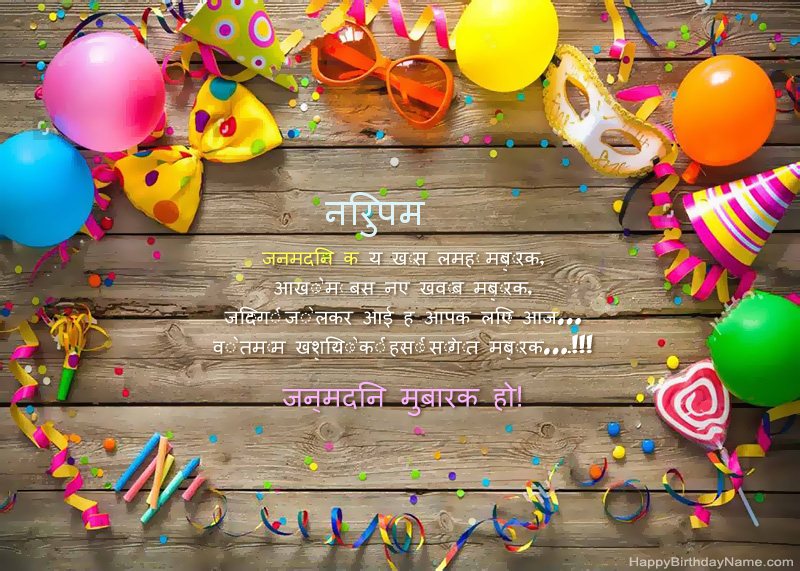 निरुपम
जन्मदिन के ये खास लम्हें मुबारक,
आंखों में बसे नए ख्वाब मुबारक,
जिंदगी जो लेकर आई है आपके लिए आज...
वो तमाम खुशियों की हंसीं सौगात मुबारक...!!!
जन्मदिन मुबारक हो!
HappyBirthdayName.com